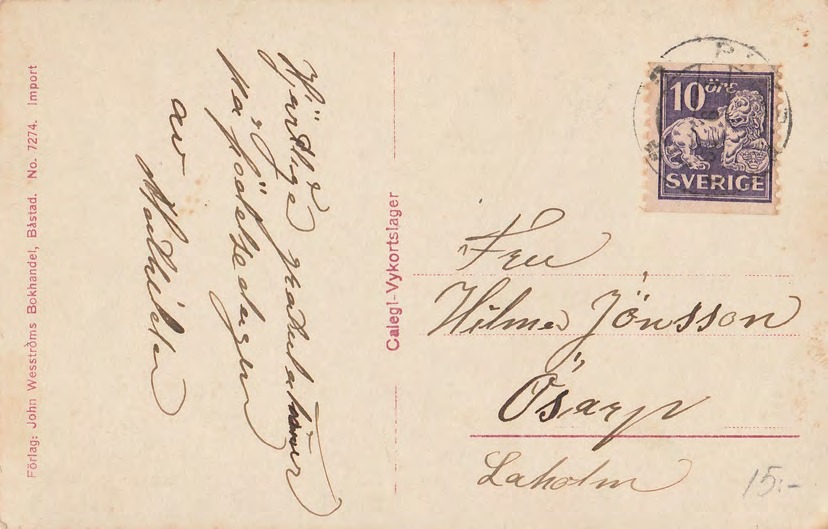 Hjärtliga gratulationer
på födelsedagen
av Mathilda
Förlag: John Wesströms Bokhandel, Båstad. No. 7274. Import
Calegi-Vykortslager
10 öre
SVERIGE
Fru
Hilma Jönsson
Ösarp
Laholm
15:-